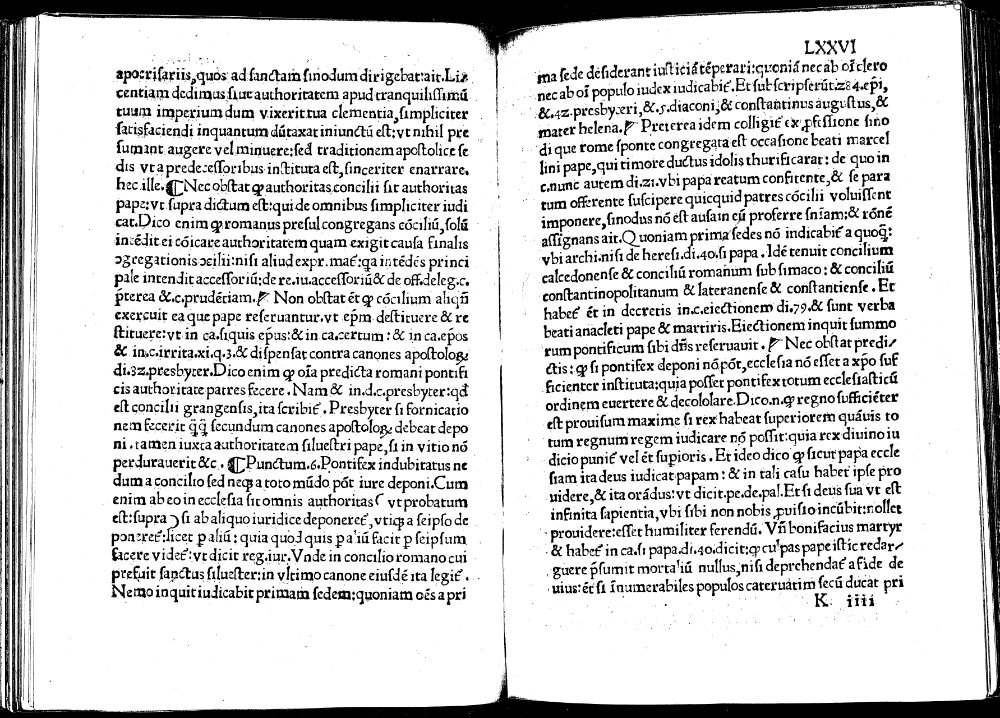 apocrisariis, quos ad sanctam sinodum dirigebat: ait. Li⸗
centiam dedimus siue authoritatem apud tranquilissimū
tuum imperium dum vixerit tua clementia, simpliciter
satisfaciendi inquantum dūtaxat iniunctū est: vt nihil pre
sumant augere vel minuere: sed traditionem apostolice se
dis vt a predecessoribus instituta est, sinceriter enarrare.
hec ille. ¶ Nec obstat ꝙ authoritas concilii sit authoritas
pape: vt supra dictum est: qui de omnibus simpliciter iudi
cat. Dico enim ꝙ romanus presul congregans cōciliū, solū
intēdit ei cōicare authoritatem quam exigit causa finalis
ↄgregationis ↄcilii: nisi aliud expr̄. mat̄: qa intēdēs princi
pale intendit accessoriū: de re. iu. accessoriū & de off. deleg. c.
p̄terea & .c. prudētiam. ¶ Non obstat ēt ꝙ cōcilium aliqn̄
exercuit ea que pape reseruantur. vt ep̄m destituere & re
stituere: vt in ca. siquis ep̄us: & in ca. certum: & in ca. ep̄os
& in .c. irrita. xi. q. 3. & dispensat contra canones apostoloꝝ
di. 32. presbyter. Dico enim ꝙ oīa predicta romani pontifi
cis authoritate patres fecere. Nam & in .d. c. presbyter: qd̄
est concilii grangensis, ita scribit̄. Presbyter si fornicatio
nem fecerit q̄q̄ secundum canones apostoloꝝ debeat depo
ni. tamen iuxta authoritatem siluestri pape, si in vitio nō
perdurauerit &c. ¶ Punctum .6. Pontifex indubitatus ne
dum a concilio sed neqꝫ a toto mūdo pōt iure deponi. Cum
enim ab eo in ecclesia sit omnis authoritas ( vt probatum
est: supra ) si ab aliquo iuridice deponeret̄, vtiqꝫ a seipso de
poneret̄: licet ꝑ aliū: quia quod quis ꝑ aliū facit ꝑ seipsum
facere videt̄: vt dicit reg. iur. Vnde in concilio romano cui
prefuit sanctus siluester: in vltimo canone eiusdē ita legit̄.
Nemo inquit iudicabit primam sedem: quoniam oēs a pri
LXXVI
ma sede desiderant iusticiā tēperari: quoniā nec ab oī clero
nec ab oī populo iudex iudicabit̄. Et subscripserūt .284. ep̄i,
& .42. presbyteri, & .5. diaconi, & constantinus augustus, &
mater helena. ¶ Preterea idem colligit̄ ex ꝓfessione sino
di que rome sponte congregata est occasione beati marcel
lini pape, qui timore ductus idolis thurificarat: de quo in
c. nunc autem di. 21. vbi papa reatum confitente, & se para
tum offerente suscipere quicquid patres cōcilii voluissent
imponere, sinodus nō est ausa in eū proferre sn̄iam: & rōnē
assignans ait. Quoniam prima sedes nō indicabit̄ a quoqꝫ:
vbi archi. nisi de heresi. di. 40. si papa. Idē tenuit concilium
calcedonense & conciliū romanum sub simaco: & conciliū
constantinopolitanum & lateranense & constantiense. Et
habet̄ ēt in decretis in .c. eiectionem di. 79. & sunt verba
beati anacleti pape & martiris. Eiectionem inquit summo
rum pontificum sibi dn̄s reseruauit. ¶ Nec obstat predi⸗
ctis: ꝙ si pontifex deponi nō pōt, ecclesia nō esset a xp̄o suf
ficienter instituta: quia posset pontifex totum ecclesiasticū
ordinem euertere & decololare. Dico .n. ꝙ regno sufficiēter
est prouisum maxime si rex habeat superiorem quāuis to
tum regnum regem iudicare nō possit: quia rex diuino iu
dicio punit̄ vel ēt supioris. Et ideo dico ꝙ sicut papa eccle
siam ita deus iudicat papam: & in tali casu habet ipse pro
uidere, & ita orādus: vt dicit. pe. de. pal. Et si deus sua vt est
infinita sapientia, vbi sibi non nobis ꝓuisio incūbit: nollet
prouidere: esset humiliter ferendū. Vn̄ bonifacius martyr
& habet̄ in ca. si papa. di. 40. dicit: ꝙ culpas pape istic redar⸗
guere p̄sumit mortaliū nullus, nisi deprehendat̄ a fide de
uius: ēt si īnumerabiles populos cateruatim secū ducat pri
K iiii